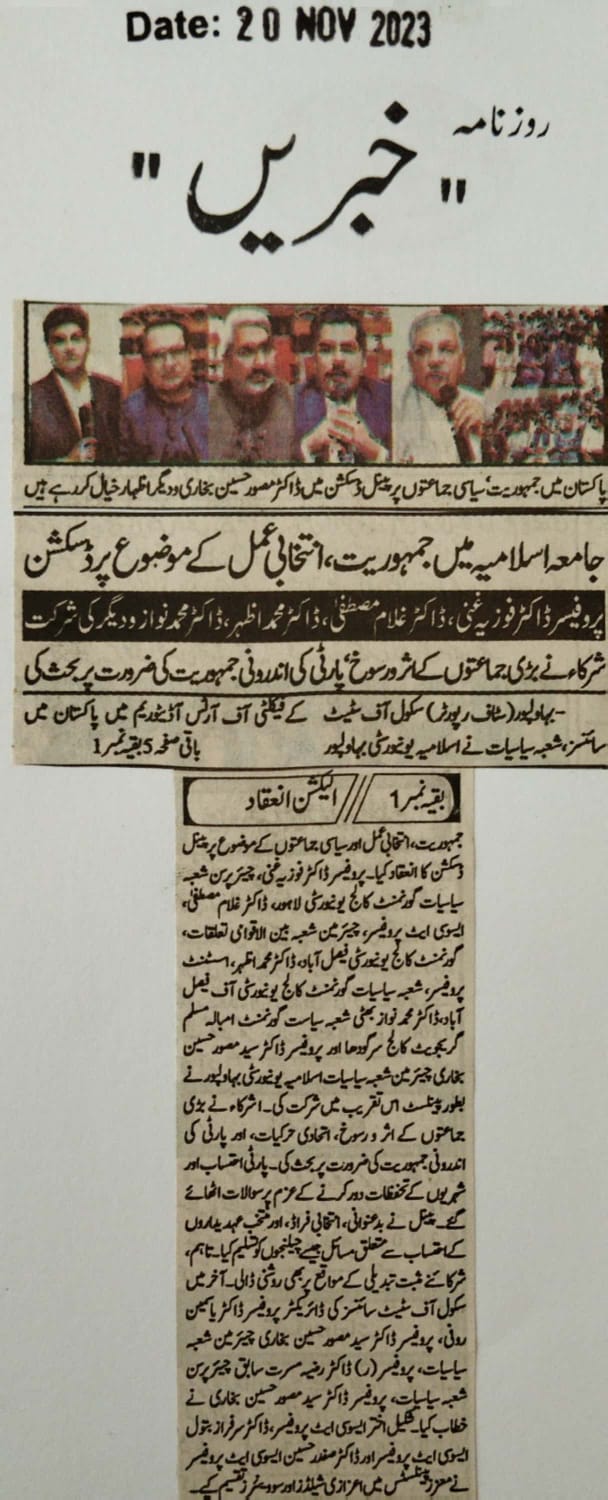 Date: 20 NOV 2023
روزنامہ
"خبریں"
پاکستان میں جمہوریت سیاسی جماعتوں پر پینل ڈسکشن میں ڈاکٹر مصور حسین بخاری و دیگر اظہار خیال کر رہے ہیں
جامعہ اسلامیہ میں جمہوریت، انتخابی عمل کے موضوع پر ڈسکشن
پروفیسر ڈاکٹر فوزیہ غنی، ڈاکٹر غلام مصطفیٰ، ڈاکٹر محمد اظہر، ڈاکٹر محمد نواز و دیگر کی شرکت
شرکاء نے بڑی جماعتوں کے اثر و رسوخ، پارٹی کی اندرونی جمہوریت کی ضرورت پر بحث کی
بہاولپور (سٹاف رپورٹر) سکول آف سٹیٹ
سائنسز، شعبہ سیاسیات نے اسلامیہ یونیورسٹی بہاولپور
کے فیکلٹی آف آرٹس آڈیٹوریم میں پاکستان میں
باقی صفحہ 5 بقیہ نمبر 1
بقیہ نمبر 1 // الیکشن انعقاد
جمہوریت، انتخابی عمل اور سیاسی جماعتوں کے موضوع پر پینل
ڈسکشن کا انعقاد کیا۔ پروفیسر ڈاکٹر فوزیہ غنی، چیئرپرسن شعبہ
سیاسیات گورنمنٹ کالج یونیورسٹی لاہور، ڈاکٹر غلام مصطفیٰ،
ایسوسی ایٹ پروفیسر، چیئرمین شعبہ بین الاقوامی تعلقات،
گورنمنٹ کالج یونیورسٹی فیصل آباد، ڈاکٹر محمد اظہر، اسسٹنٹ
پروفیسر، شعبہ سیاسیات گورنمنٹ کالج یونیورسٹی آف فیصل
آباد، ڈاکٹر محمد نواز بھٹی شعبہ سیاست گورنمنٹ امبالہ مسلم
گریجویٹ کالج سرگودھا اور پروفیسر ڈاکٹر سید مصور حسین
بخاری چیئرمین شعبہ سیاسیات اسلامیہ یونیورسٹی بہاولپور نے
بطور پینلسٹ اس تقریب میں شرکت کی۔ اشرکاء نے بڑی
جماعتوں کے اثر و رسوخ، اتحادی حرکیات، اور پارٹی کی
اندرونی جمہوریت کی ضرورت پر بحث کی۔ پارٹی احتساب اور
شہریوں کے تحفظات دور کرنے کے عزم پر سوالات اٹھائے
گئے۔ پینل نے بدعنوانی، انتخابی فراڈ، اور منتخب عہدیداروں
کے احتساب سے متعلق مسائل جیسے چیلنجوں کو تسلیم کیا۔ تاہم،
شرکائے مثبت تبدیلی کے مواقع پر بھی روشنی ڈالی۔ آخر میں
سکول آف سٹیٹ سائنسز کی ڈائریکٹر پروفیسر ڈاکٹر یاسمین
روفی، پروفیسر ڈاکٹر سید مصور حسین بخاری چیئرمین شعبہ
سیاسیات، پروفیسر (ر) ڈاکٹر رضیہ مسرت سابق چیئرپرسن
شعبہ سیاسیات، پروفیسر ڈاکٹر سید مصور حسین بخاری نے
خطاب کیا۔ شکیل اختر ایسوسی ایٹ پروفیسر، ڈاکٹر سرفراز بتول
ایسوسی ایٹ پروفیسر اور ڈاکٹر صفدر حسین ایسوسی ایٹ پروفیسر
نے معزز پینلسٹس میں اعزازی شیلڈز اور سووینئرز تقسیم کیے۔